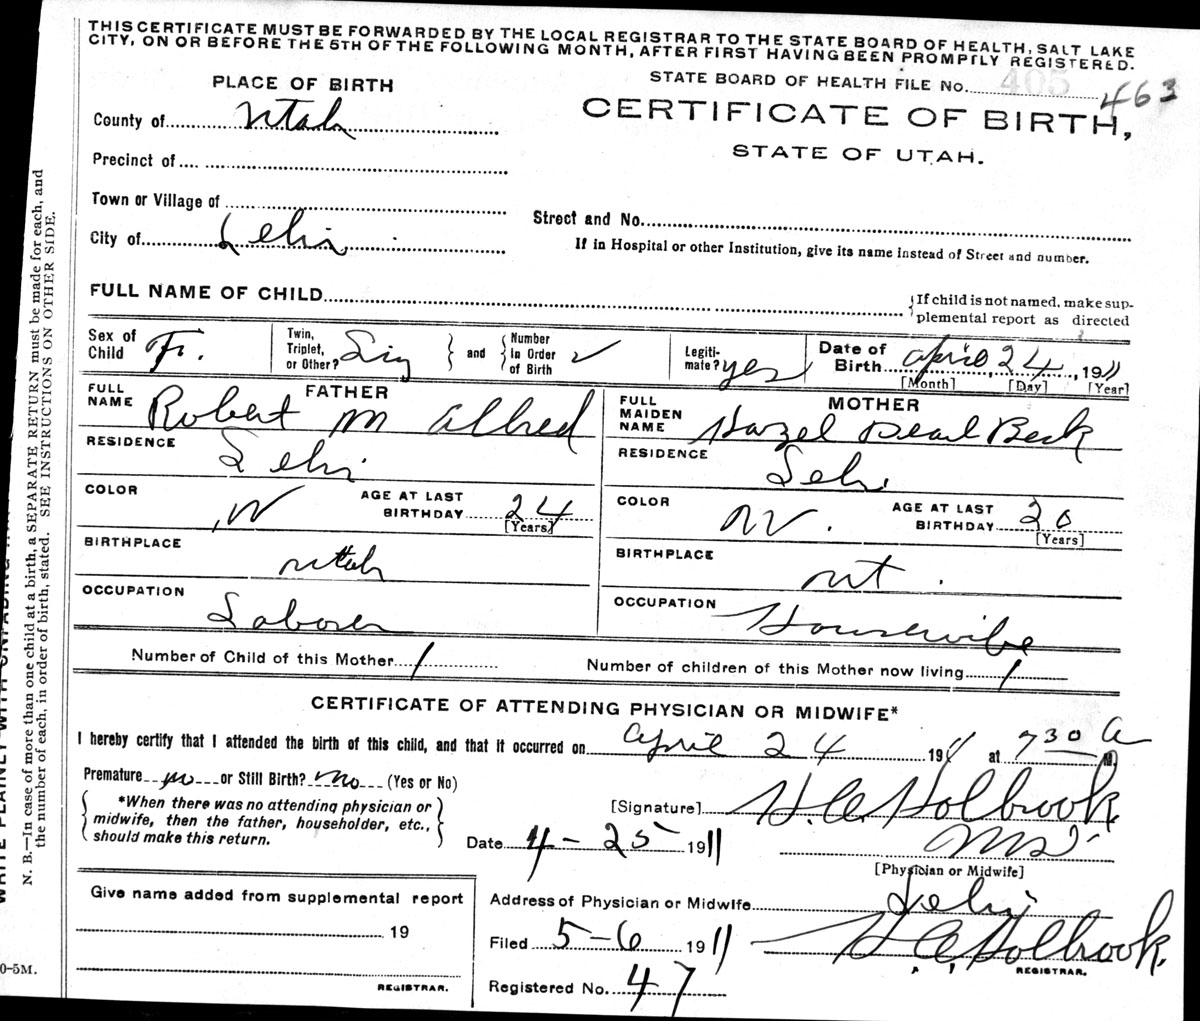 THIS CERTIFICATE MUST BE FORWARDED BY THE LOCAL REGISTRAR TO THE STATE BOARD OF HEALTH, SALT LAKE
CITY, ON OR BEFORE THE 5TH OF THE FOLLOWING MONTH, AFTER FIRST HAVING BEEN PROMPTLY REGISTERED.
PLACE OF BIRTH
STATE BOARD OF HEALTH FILE No. 405 463
County of Utah
CERTIFICATE OF BIRTH,
STATE OF UTAH.
Precinct of
Town or Village of
Street and No.
City of Lehi
If in Hospital or other Institution, give its name instead of Street and number.
FULL NAME OF CHILD
{If child is not named, make sup-
plemental report as directed
Sex of Child F.
Twin, Triplet, or Other? Sing and Number in Order of Birth
Legiti- mate? yes
Date of Birth April 24, 1911
[Month] [Day] [Year]
FATHER
FULL NAME Robert M Allred
MOTHER
FULL MAIDEN NAME Hazel Pearl Beck
RESIDENCE Lehi
RESIDENCE Lehi
COLOR W AGE AT LAST BIRTHDAY 24 [Years]
COLOR W. AGE AT LAST BIRTHDAY 20 [Years]
BIRTHPLACE Utah
BIRTHPLACE Ut.
OCCUPATION Laborer
OCCUPATION Housewife
Number of Child of this Mother 1
Number of children of this Mother now living 1
CERTIFICATE OF ATTENDING PHYSICIAN OR MIDWIFE*
I hereby certify that I attended the birth of this child, and that it occurred on April 24 1911 at 730 A M.
Premature no or Still Birth? no (Yes or No)
*When there was no attending physician or
midwife, then the father, householder, etc.,
should make this return.
[Signature] H. A. Holbrook
Date 4-25 1911
MD
[Physician or Midwife]
Give name added from supplemental report
19
REGISTRAR.
Address of Physician or Midwife Lehi
Filed 5-6 1911 H A Holbrook.
REGISTRAR.
Registered No. 47
N. B.—In case of more than one child at a birth, a SEPARATE RETURN must be made for each, and
the number of each, in order of birth, stated. SEE INSTRUCTIONS ON OTHER SIDE.
WRITE PLAINLY WITH UNFADING
0-5M.